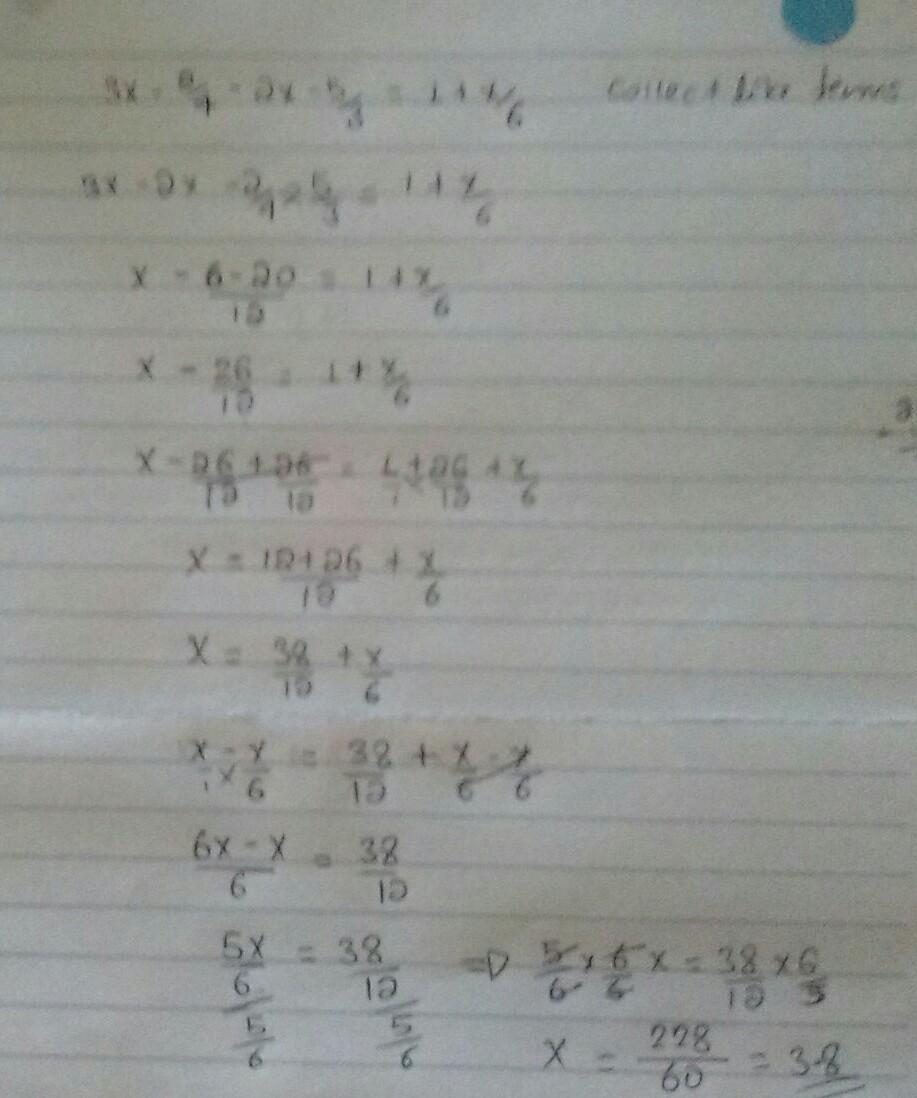 3x - 2/4 - 2x - 5/3 = 1 + x/6 collect like terms
3x - 2x - 2/4 - 5/3 = 1 + x/6
x - 6-20/12 = 1 + x/6
x - 26/12 = 1 + x/6
x - 26/12 + 26/12 = 1/1 + 26/12 + x/6
x = 12+26/12 + x/6
x = 38/12 + x/6
x/1 - x/6 = 38/12 + x/6 - x/6
6x - x/6 = 38/12
5x/6 / 5/6 = 38/12 / 5/6 => 5/6 x 6/6 x = 38/12 x 6/5
x = 228/60 = 3.8